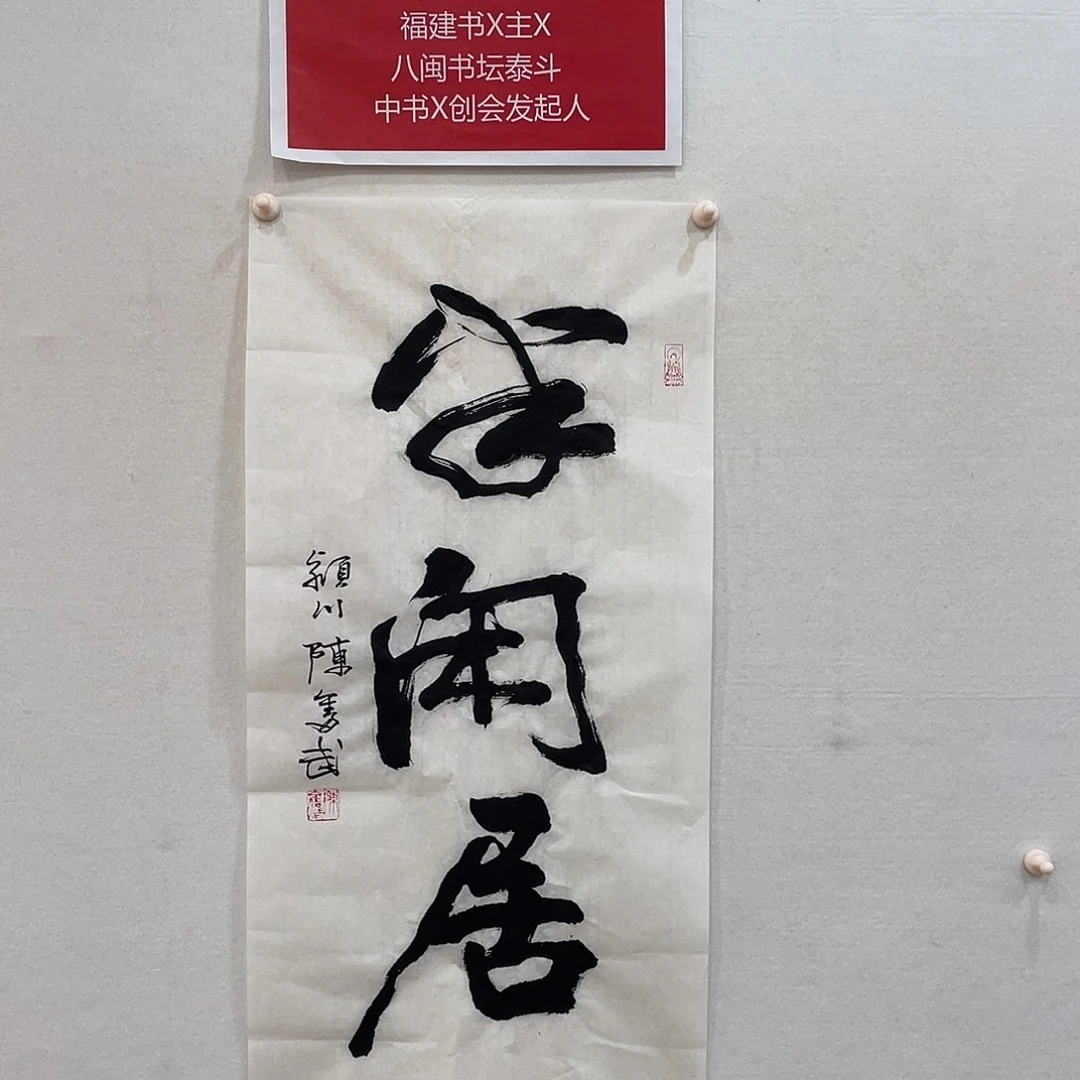 福建书X主X
八闽书坛泰斗
中书X创会发起人
闲居
潁川陳奮武